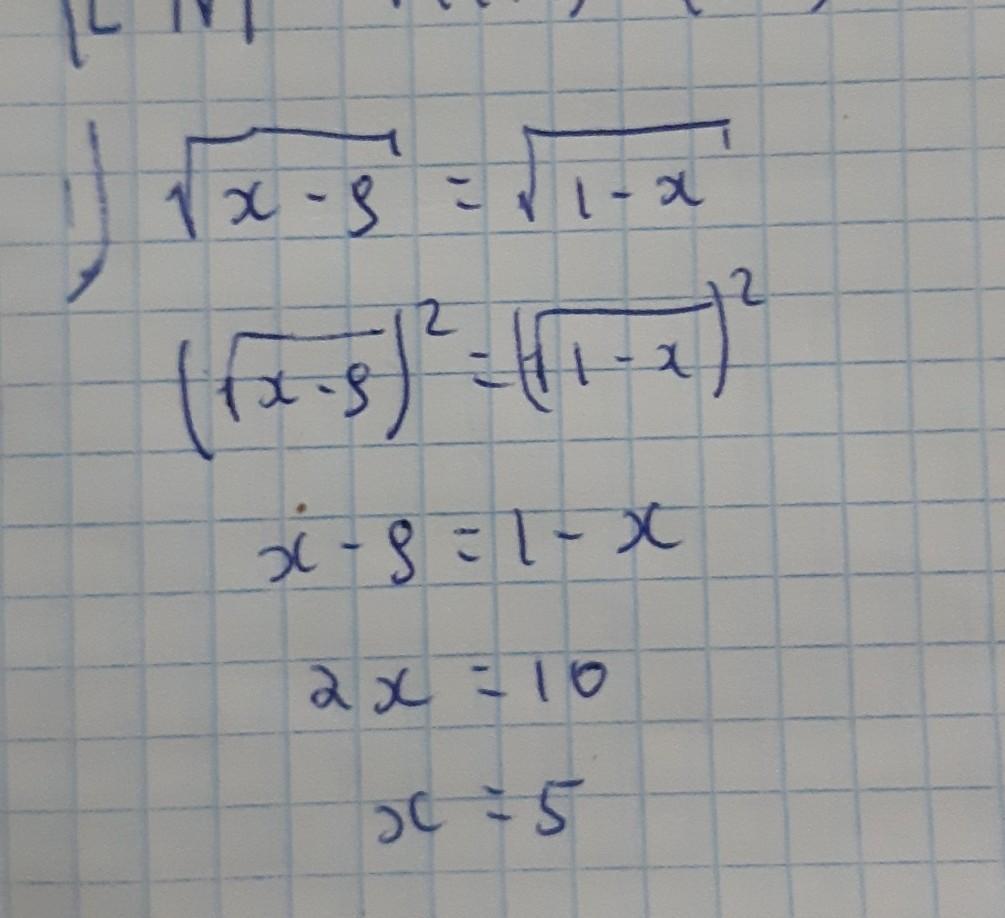 1) √(x - 9) = √(1 - x)
(√(x - 9))² = (√(1 - x))²
x - 9 = 1 - x
2x = 10
x = 5